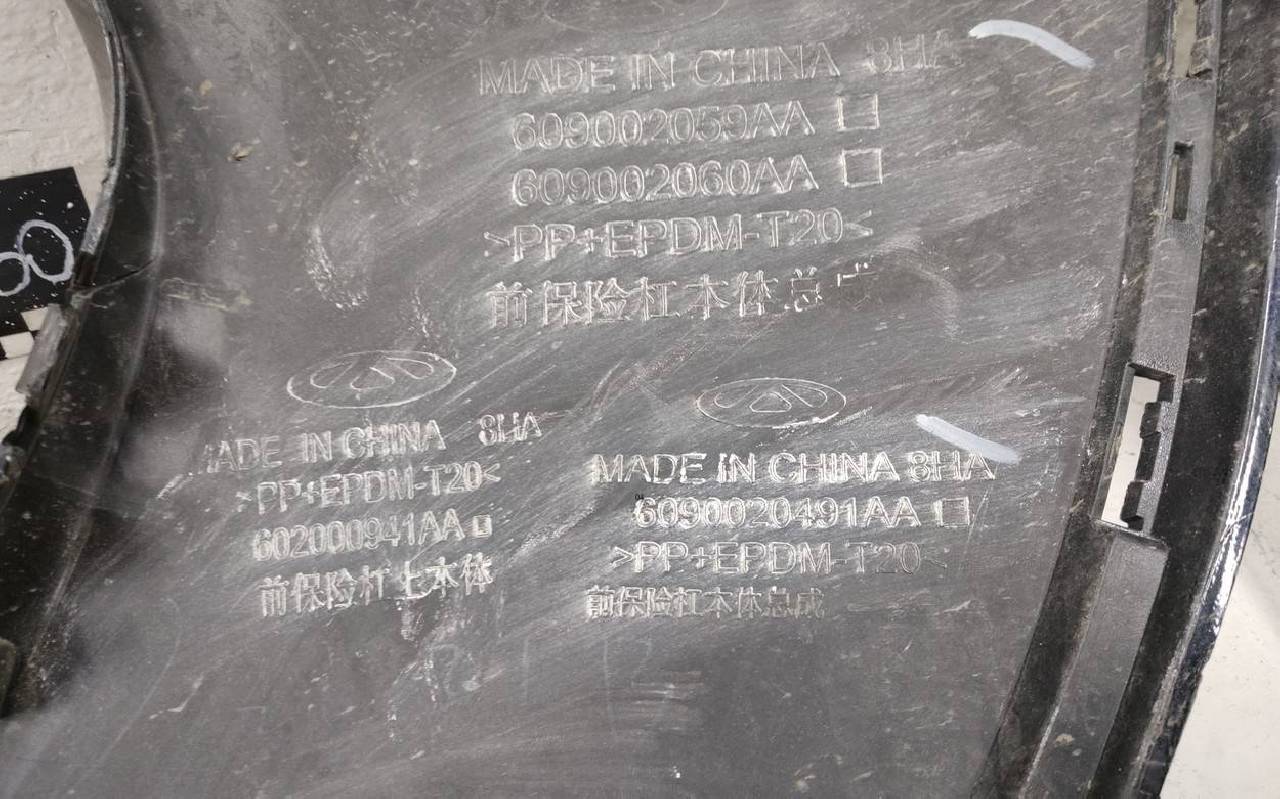 MADE IN CHINA 8HA
609002059AA
609002060AA
>PP+EPDM-T20<
前保险杠本体总成
MADE IN CHINA 8HA
>PP+EPDM-T20<
602000941AA
前保险杠上本体
MADE IN CHINA 8HA
6090020491AA
>PP+EPDM-T20<
前保险杠本体总成